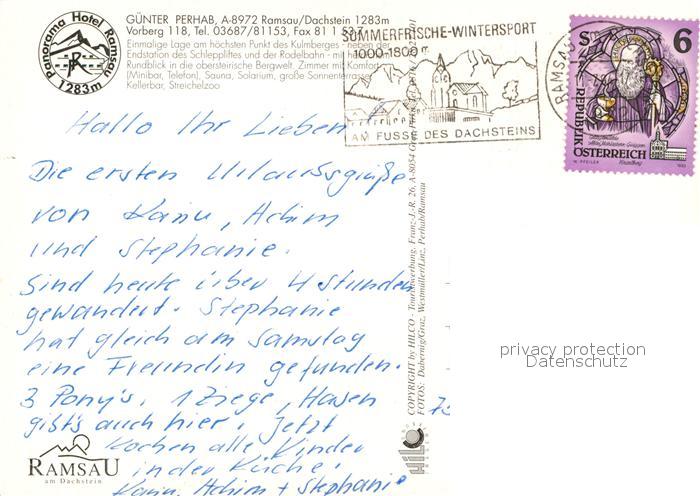 Panorama Hotel Ramsau
1283m
GÜNTER PERHAB, A-8972 Ramsau/Dachstein 1283m
Vorberg 118, Tel. 03687/81153, Fax 81 1 53 7
Einmalige Lage am höchsten Punkt des Kulmberges - neben der
Endstation des Schleppliftes und der Rodelbahn - mit herrlichem
Rundblick in die obersteirische Bergwelt. Zimmer mit Komfort
(Minibar, Telefon), Sauna, Solarium, große Sonnenterrasse,
Kellerbar, Streichelzoo
SOMMERFRISCHE-WINTERSPORT
1000-1800 m
AM FUSSE DES DACHSTEINS
RAMSAU
S 6
REPUBLIK
ÖSTERREICH
Hallo Ihr Lieben!
Die ersten Urlaubsgrüße
von Karin, Achim
und Stephanie.
Sind heute über 4 Stunden
gewandert. Stephanie
hat gleich am Samstag
eine Freundin gefunden.
3 Pony's, 1 Ziege, Hasen
gibt's auch hier, jetzt
kochen alle Kinder
in der Küche!
Karin, Achim + Stephanie
RAMSAU
am Dachstein
COPYRIGHT by HILCO - Tourismuswerbung, Franz-J.-R. 26, A-8054 Graz
FOTOS: Dabernig/Graz, Westmüller/Linz, Perhab/Ramsau
HILCO
privacy protection
Datenschutz